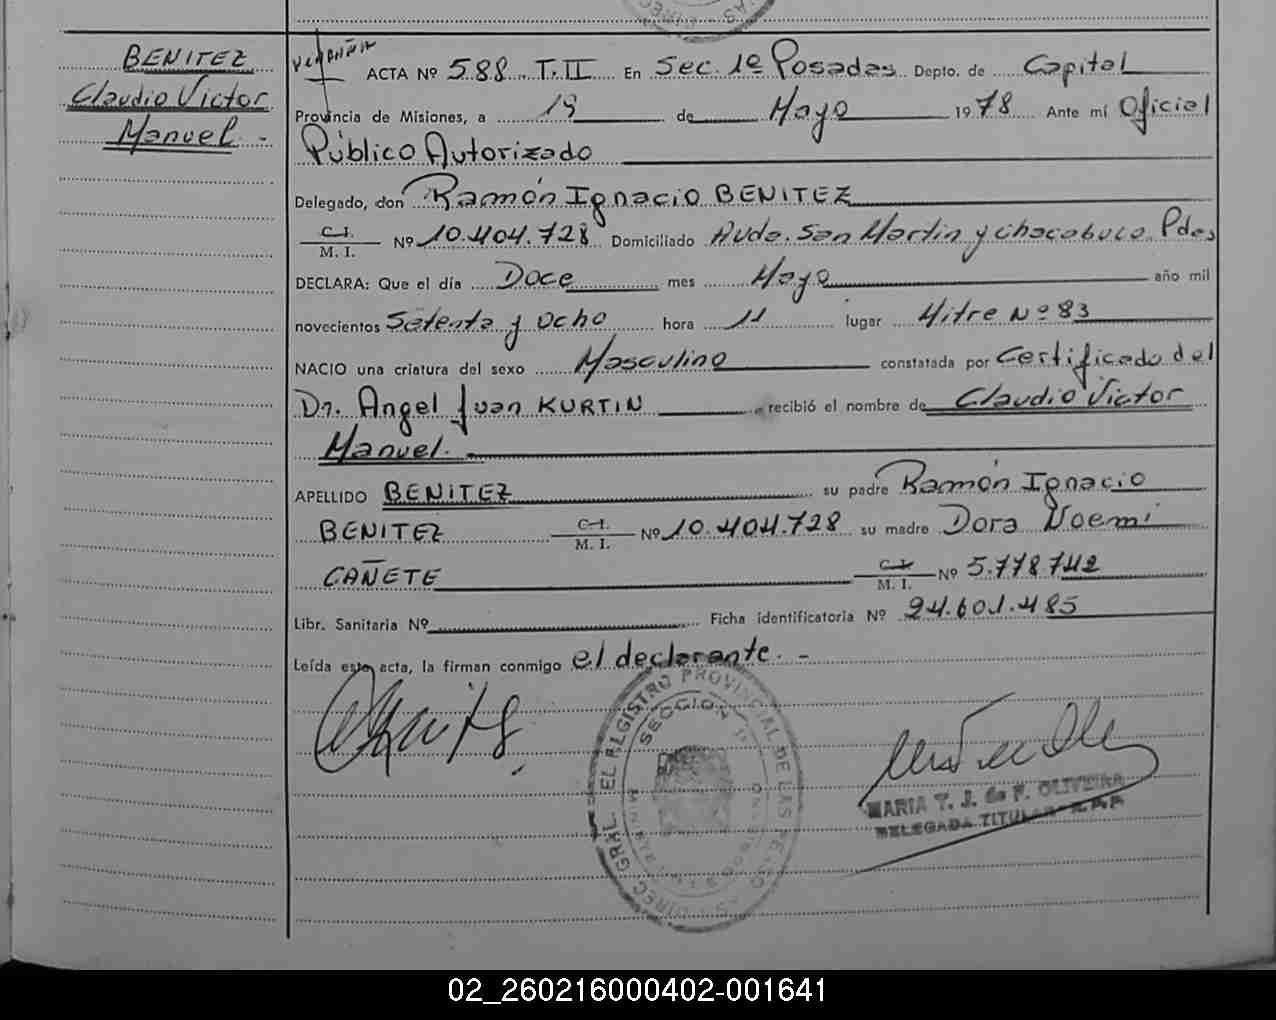 BENITEZ
Claudio Victor
Manuel -
ACTA Nº 588 T.II En Sec. 1º Posadas Depto. de Capital
Provincia de Misiones, a 19 de Mayo 1978 Ante mí Oficial
Público Autorizado
Delegado, don Ramón Ignacio BENITEZ
C.I.
M. I. Nº 10.404.728 Domiciliado Avda. San Martin y Chacabuco Pdas
DECLARA: Que el día Doce mes Mayo año mil
novecientos Setenta y ocho hora 11 lugar Mitre Nº 83
NACIO una criatura del sexo Masculino constatada por Certificado del
Dr. Angel Juan KURTIN recibió el nombre de Claudio Victor
Manuel.
APELLIDO BENITEZ su padre Ramón Ignacio
BENITEZ C.I. M. I. Nº 10.404.728 su madre Dora Noemi
CAÑETE C.I. M. I. Nº 5.778.742
Libr. Sanitaria Nº Ficha identificatoria Nº 24.601.485
Leída esta acta, la firman conmigo el declarante. -
DIREC. GRAL. EL REGISTRO PROVINCIAL DE LAS PERSONAS
SECCION 1ª
MARIA T. J. de F. OLIVEIRA
DELEGADA TITULAR R.P.P.
02_260216000402-001641